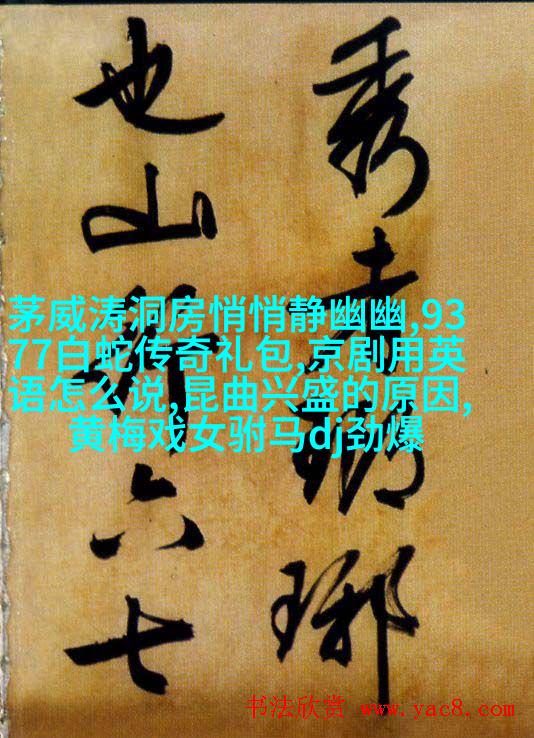 秀者瑯琊
也山行六七
茅威涛洞房悄悄静幽幽,93
77白蛇传奇礼包,京剧用英
语怎么说,昆曲兴盛的原因,
黄梅戏女驸马dj劲爆
书法欣赏 www.yac8.com